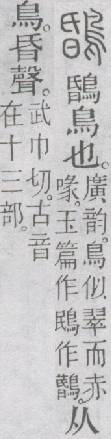 鳥也。
廣韵。鳥似翠而赤
喙。玉篇作作
从
鳥。昏聲。
武巾切。古音
在十三部。